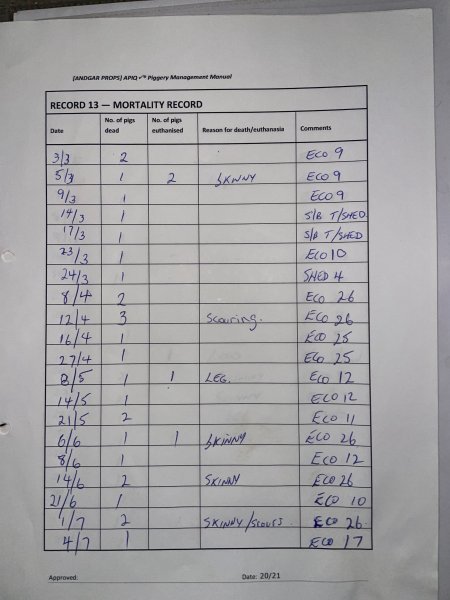 [ANDGAR PROPS] APIQ✓™ Piggery Management Manual
RECORD 13 — MORTALITY RECORD
Date No. of pigs dead No. of pigs euthanised Reason for death/euthanasia Comments
3/3 2 ECO 9
5/3 1 2 SKINNY ECO 9
9/3 1 ECO 9
14/3 1 S/B T/SHED
17/3 1 S/B T/SHED
23/3 1 ECO 10
24/3 1 SHED 4
8/4 2 ECO 26
12/4 3 Scouring. ECO 26
16/4 1 ECO 25
27/4 1 ECO 25
8/5 1 1 LEG. ECO 12
14/5 1 ECO 12
21/5 2 ECO 11
6/6 1 1 SKINNY ECO 26
8/6 1 ECO 12
14/6 2 SKINNY ECO 26
21/6 1 ECO 10
1/7 2 SKINNY/SCOURS. ECO 26.
4/7 1 ECO 17
Approved: Date: 20/21